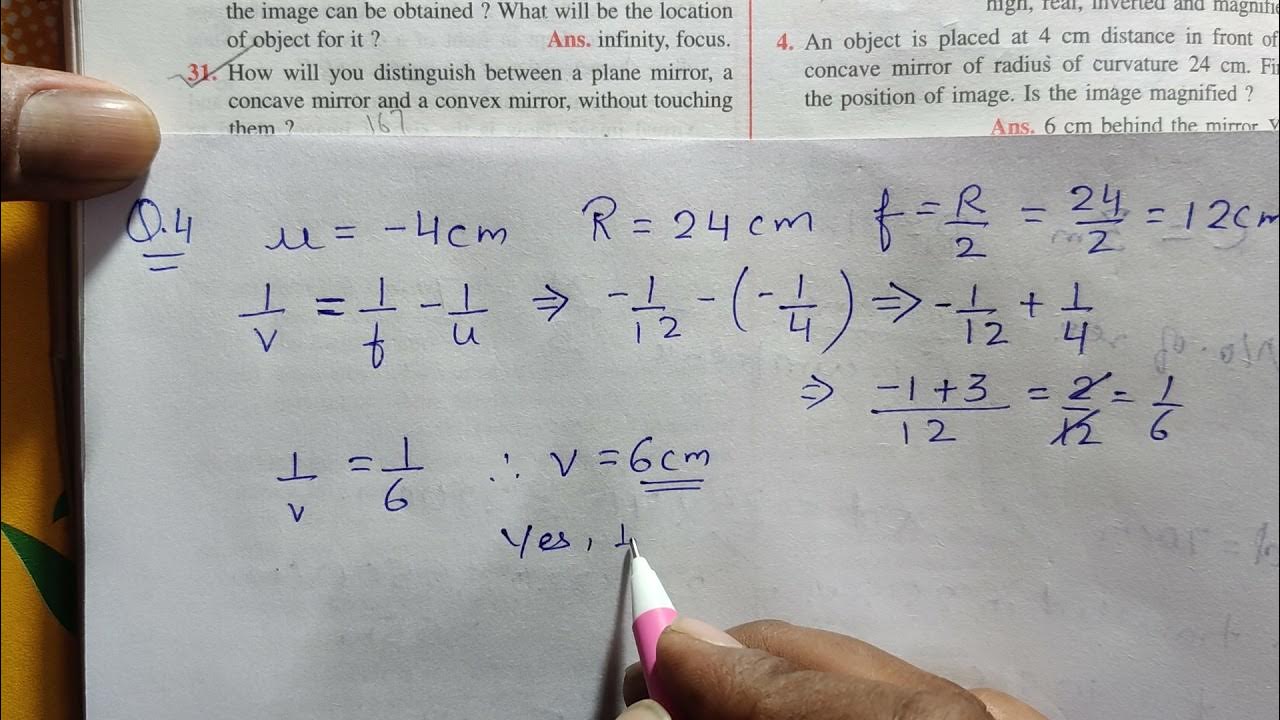 the image can be obtained ? What will be the location
of object for it ? Ans. infinity, focus.
31. How will you distinguish between a plane mirror, a
concave mirror and a convex mirror, without touching
them ? 167
high, real, inverted and magnifie
4. An object is placed at 4 cm distance in front of
concave mirror of radius of curvature 24 cm. Fi
the position of image. Is the image magnified ?
Ans. 6 cm behind the mirror
Q.4 u = -4cm R = 24 cm f = R/2 = 24/2 = 12cm
1/v = 1/f - 1/u ⇒ -1/12 - (-1/4) ⇒ -1/12 + 1/4
⇒ (-1+3)/12 = 2/12 = 1/6
1/v = 1/6 ∴ v = 6cm
Yes,